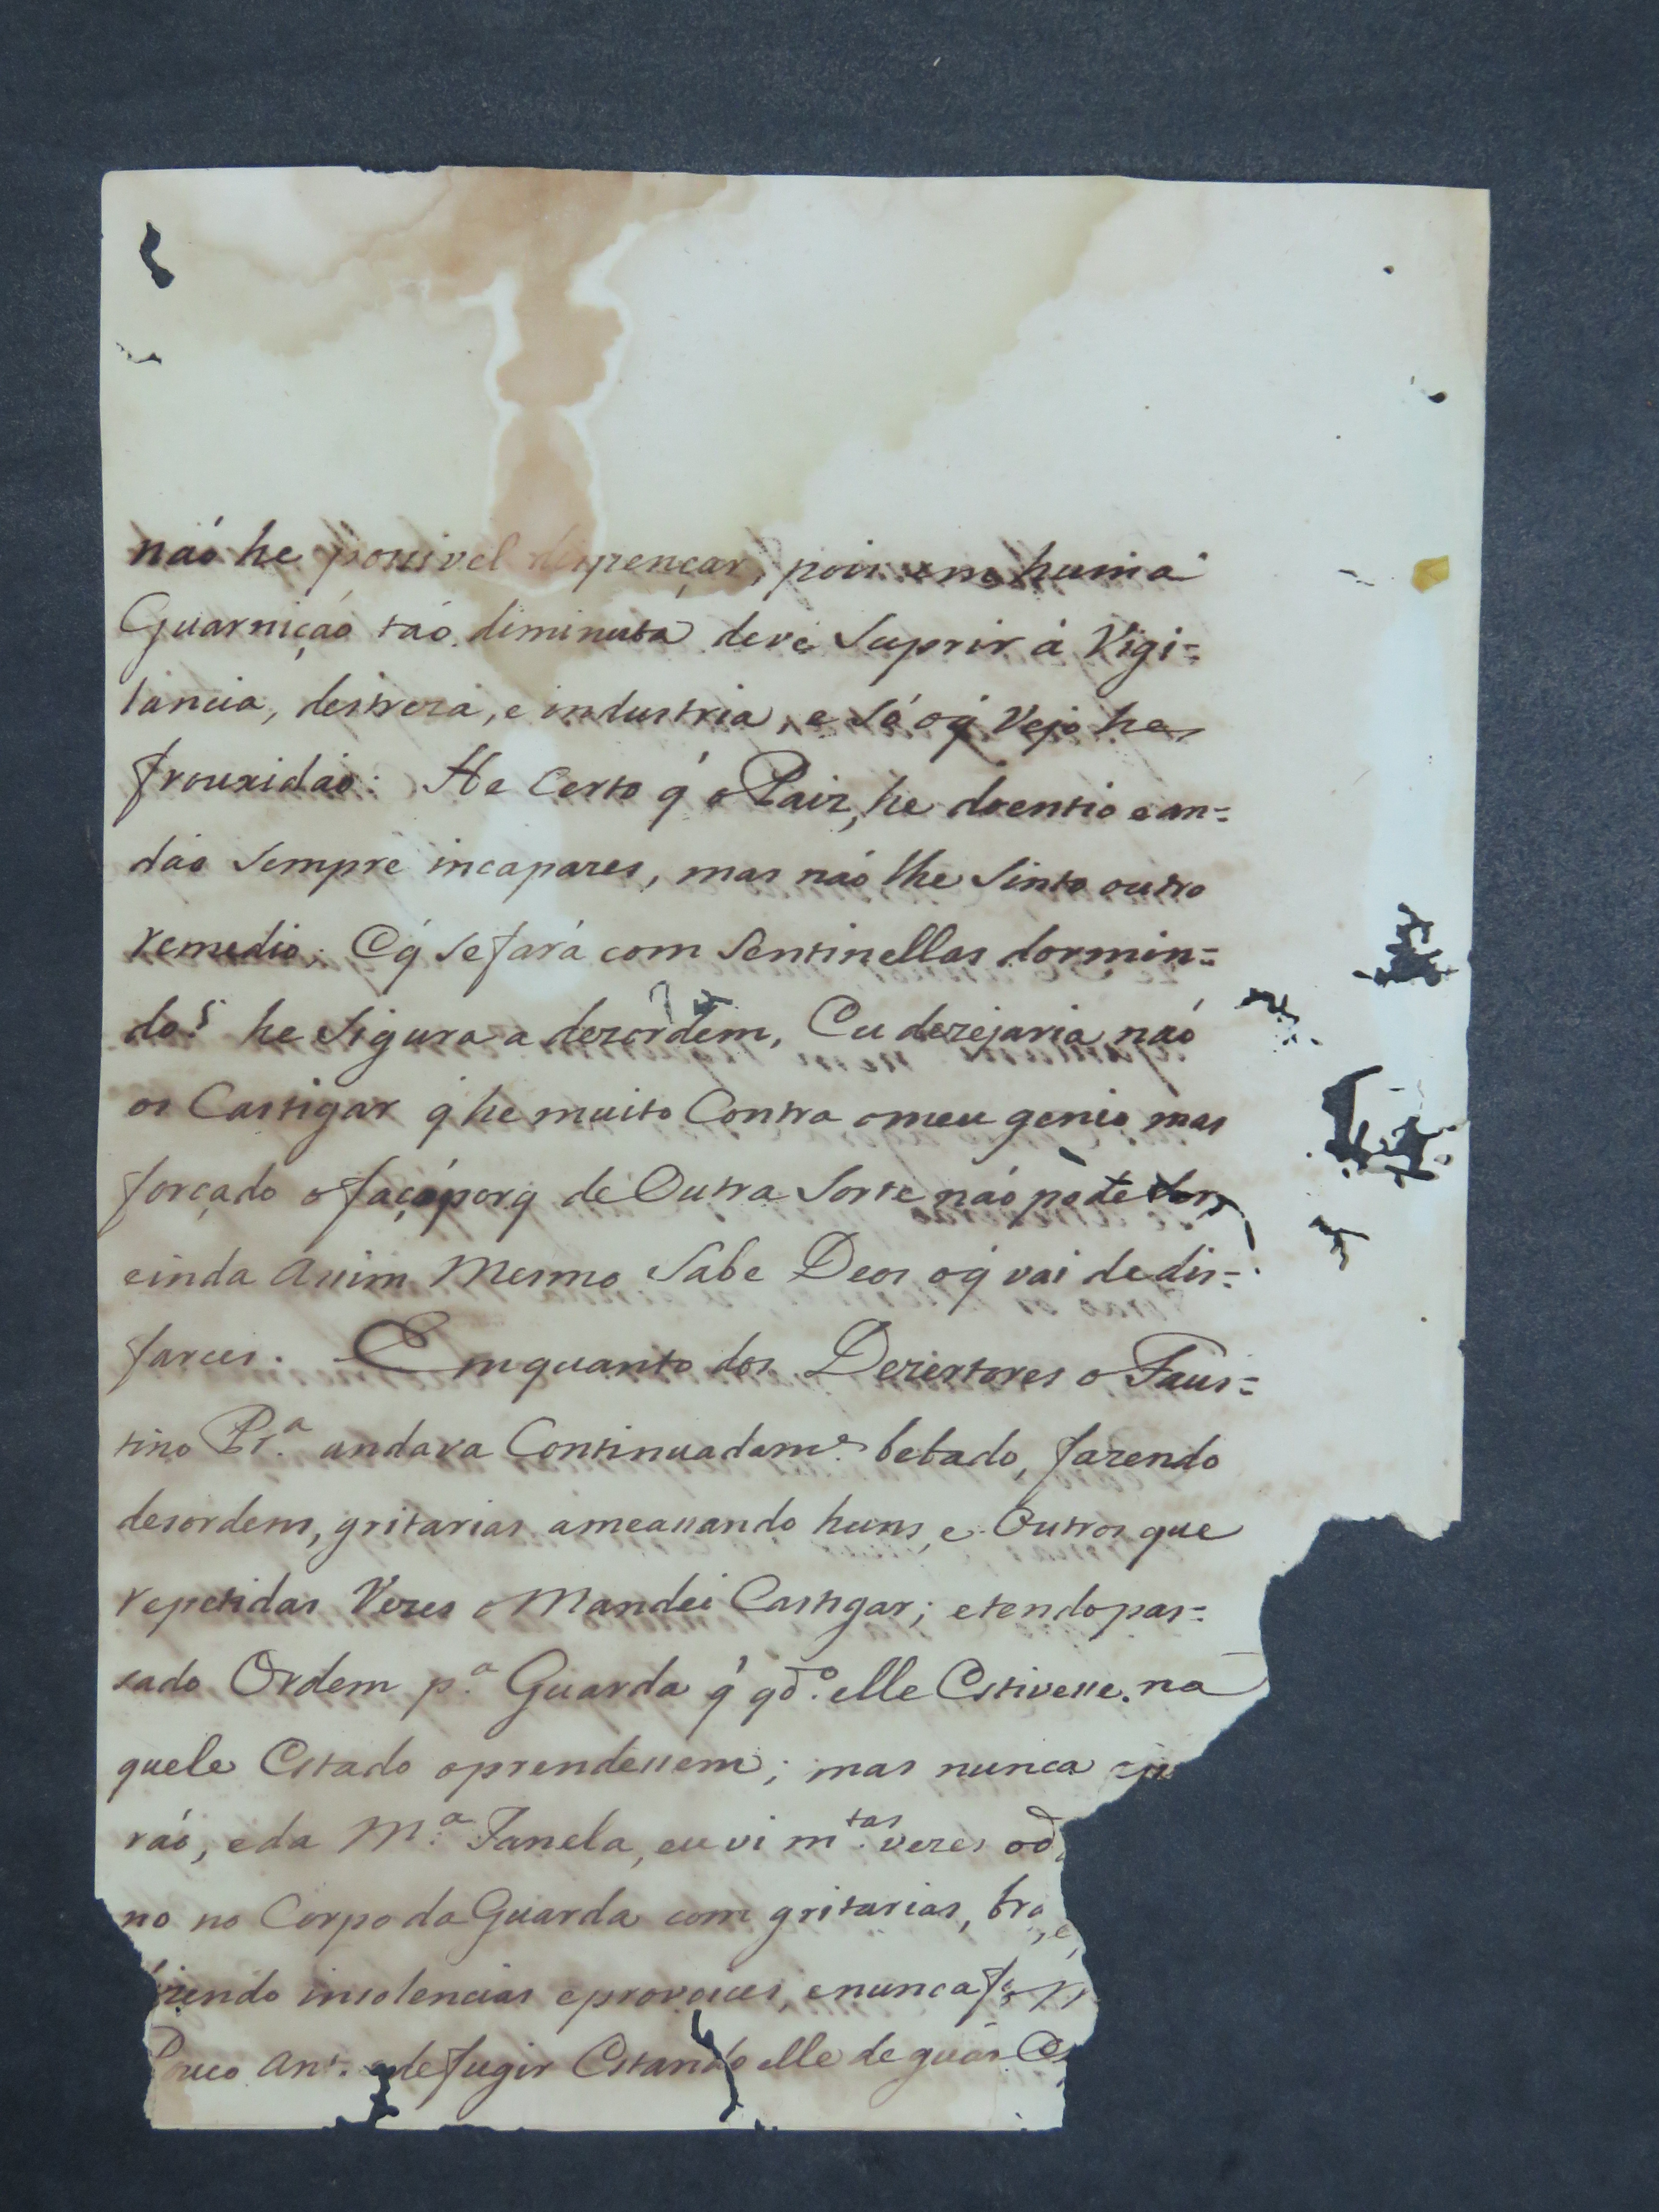 naó he possivel dispençar, pois em huma
Guarniçaó taó diminuta deve Suprir á Vigi=
lancia, destreza, e industria, e Só oq̃ Vejo he
frouxidaõ: He Certo q̃ o Paiz, he doentio e an=
daõ Sempre incapazes, mas naó lhe Sinto outro
remedio; Oq̃ Se fará com Sentinellas dormin=
do? he Sigura a dezordem, Eu dezejaria naó
os Castigar q̃ he muito Contra o meu genio mas
forçado o faço porq̃ de Outra Sorte naó pode
einda assim Mesmo Sabe Deos oq̃ vai de dis=
farces. Emquanto dos Dezertores o Faus=
tino Pr.ª andava Continuadam.e bebado, fazendo
desordens, gritarias ameassando huns, e Outros que
repetidas Vezes o Mandei Castigar; e tendo pas=
sado Ordem p.ª Guarda q̃ qd.º elle Estivesse na
quele Estado o prendessem; mas nunca
ráo, e da M.ª Janela, eu vi m.tas vezes o d
no no Corpo da Guarda com gritarias, bra
zendo insolencias e provoces, e nunca fo
Pouco ant. de fugir Estando elle de guar